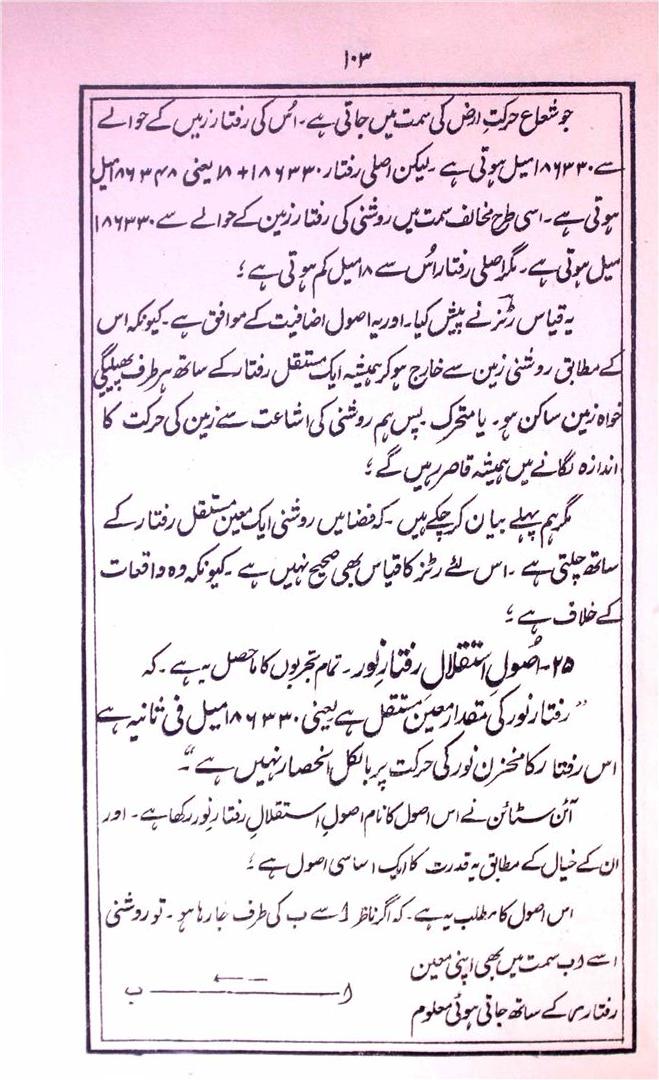 ۱۰۳
جو شعاع حرکتِ ارض کی سمت میں جاتی ہے۔ اُس کی رفتار زمیں کے حوالے
سے ۱۸۶۳۳۰ میل ہوتی ہے۔ لیکن اصلی رفتار ۱۸۶۳۳۰+۱۸ یعنی ۱۸۶۳۴۸ میل
ہوتی ہے۔ اسی طرح مخالف سمت میں روشنی کی رفتار زمین کے حوالے سے ۱۸۶۳۳۰
میل ہوتی ہے۔ مگر اصلی رفتار اُس سے ۱۸ میل کم ہوتی ہے ؛
یہ قیاس رٹز نے پیش کیا۔ اور یہ اصول اضافیت کے موافق ہے۔ کیونکہ اس
کے مطابق روشنی زمین سے خارج ہو کر ہمیشہ ایک مستقل رفتار کے ساتھ ہر طرف پھیلیگی
خواہ زمین ساکن ہو۔ یا متحرک پس ہم روشنی کی اشاعت سے زمین کی حرکت کا
اندازہ لگانے میں ہمیشہ قاصر رہیں گے ؛
مگر ہم پہلے بیان کر چکے ہیں۔ کہ فضا میں روشنی ایک معین مستقل رفتار کے
ساتھ چلتی ہے۔ اس لئے رٹز کا قیاس بھی صحیح نہیں ہے۔ کیونکہ وہ واقعات
کے خلاف ہے ؛
۲۵۔ اُصولِ استقلال رفتارِ نور۔ تمام تجربوں کا ماحصل یہ ہے۔ کہ
”رفتار نور کی مقدار معین مستقل ہے یعنی ۱۸۶۳۳۰ میل فی ثانیہ ہے
اس رفتار کا مخزن نور کی حرکت پر بالکل انحصار نہیں ہے“۔
آئن سٹائن نے اس اصول کا نام اصولِ استقلالِ رفتارِ نور رکھا ہے۔ اور
ان کے خیال کے مطابق یہ قدرت کا ایک اساسی اصول ہے ؛
اس اصول کا مطلب یہ ہے۔ کہ اگر ناظر ا سے ب کی طرف جا رہا ہو۔ تو روشنی
اسے ا ب سمت میں بھی اپنی معین
ا ب
رفتار س کے ساتھ جاتی ہوئی معلوم